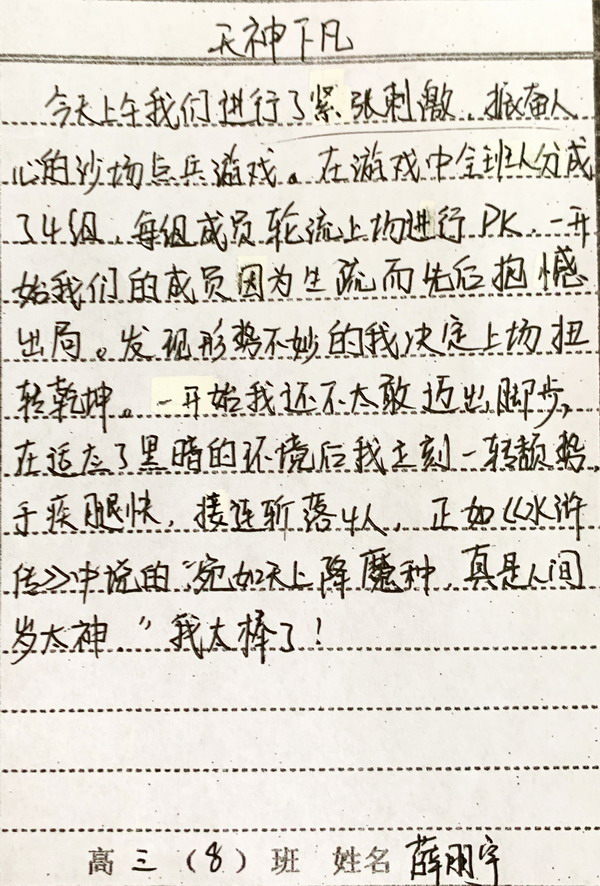 天神下凡
今天上午我们进行了紧张刺激、振奋人
心的沙场点兵游戏。在游戏中全班人分成
了4组，每组成员轮流上场进行PK，一开
始我们的成员因为生疏而先后抱憾
出局。发现形势不妙的我决定上场扭
转乾坤。一开始我还不太敢迈出脚步，
在适应了黑暗的环境后我立刻一转颓势，
手疾腿快，接连斩落4人，正如《水浒
传》中说的“宛如天上降魔种，真是人间
岁太神。”我太棒了！
高三（8）班 姓名 薛明宇